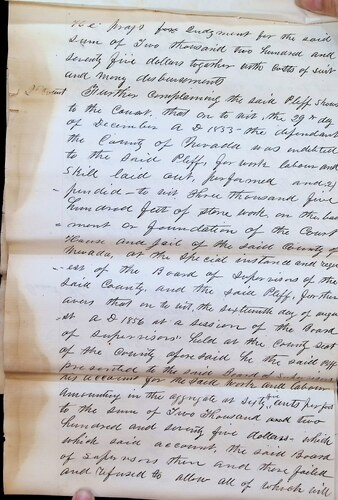 he prays for Judgment for the said
sum of Two thousand two hundred and
seventy five dollars together with costs of suit
and money disbursements
Further complaining the said Pltff shows
to the Court, that on to wit, the 29th day
of December A D 1853 the defendant
the County of Nevada was indebted
to the said Pltff, for work labour and
skill laid out, performed and ex
-pended - to wit Three thousand five
hundred feet of stone work on the base
-ment or foundation of the Court
House and Jail of the said County of
Nevada, at the special instance and requ
-est of the Board of Supervisors of the
said County. and the said Pltff, further
avers that on to wit, the sixteenth day of augu
-st A D 1856 at a session of the Board
of Supervisors held at the County seat
of the County aforesaid he the said Pltff
presented to the said Board of
his account for the said work and labour
amounting in the aggregate at Sixty five cents per foot
to the sum of Two Thousand and two
hundred and seventy five dollars - which
which said account, the said Board
of Supervisors then and there failed
and refused to allow all of which will